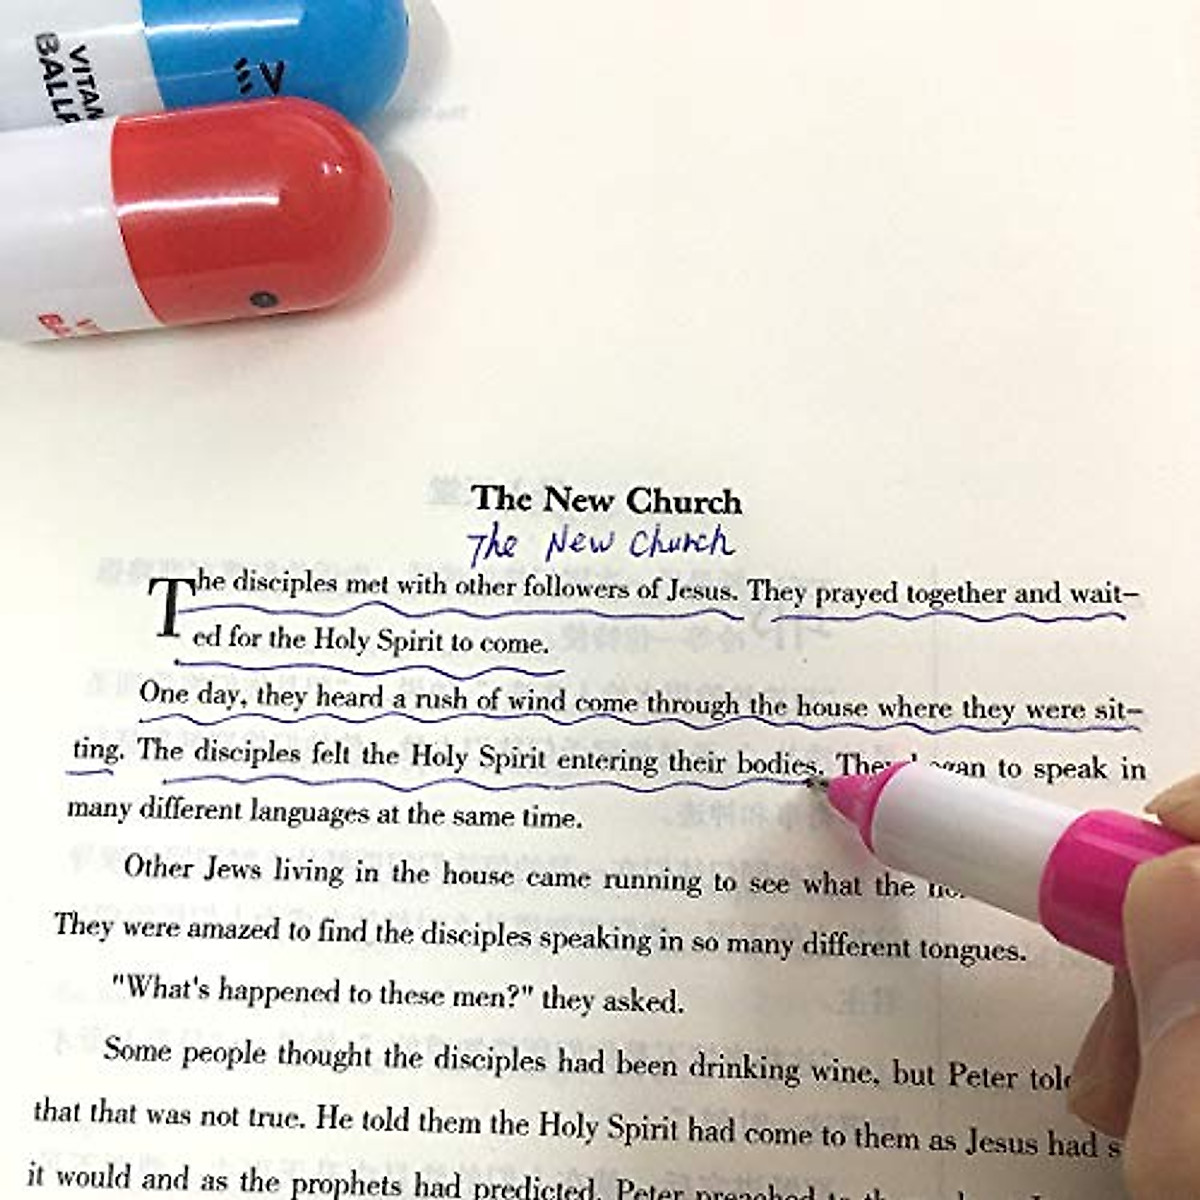 VITAM
BALLP
The New Church
The New Church
The disciples met with other followers of Jesus. They prayed together and wait-
ed for the Holy Spirit to come.
One day, they heard a rush of wind come through the house where they were sit-
ting. The disciples felt the Holy Spirit entering their bodies. They began to speak in
many different languages at the same time.
Other Jews living in the house came running to see what the
They were amazed to find the disciples speaking in so many different tongues.
"What's happened to these men?" they asked.
Some people thought the disciples had been drinking wine, but Peter told
that that was not true. He told them the Holy Spirit had come to them as Jesus had s
it would and as the prophets had predicted. Peter preached to